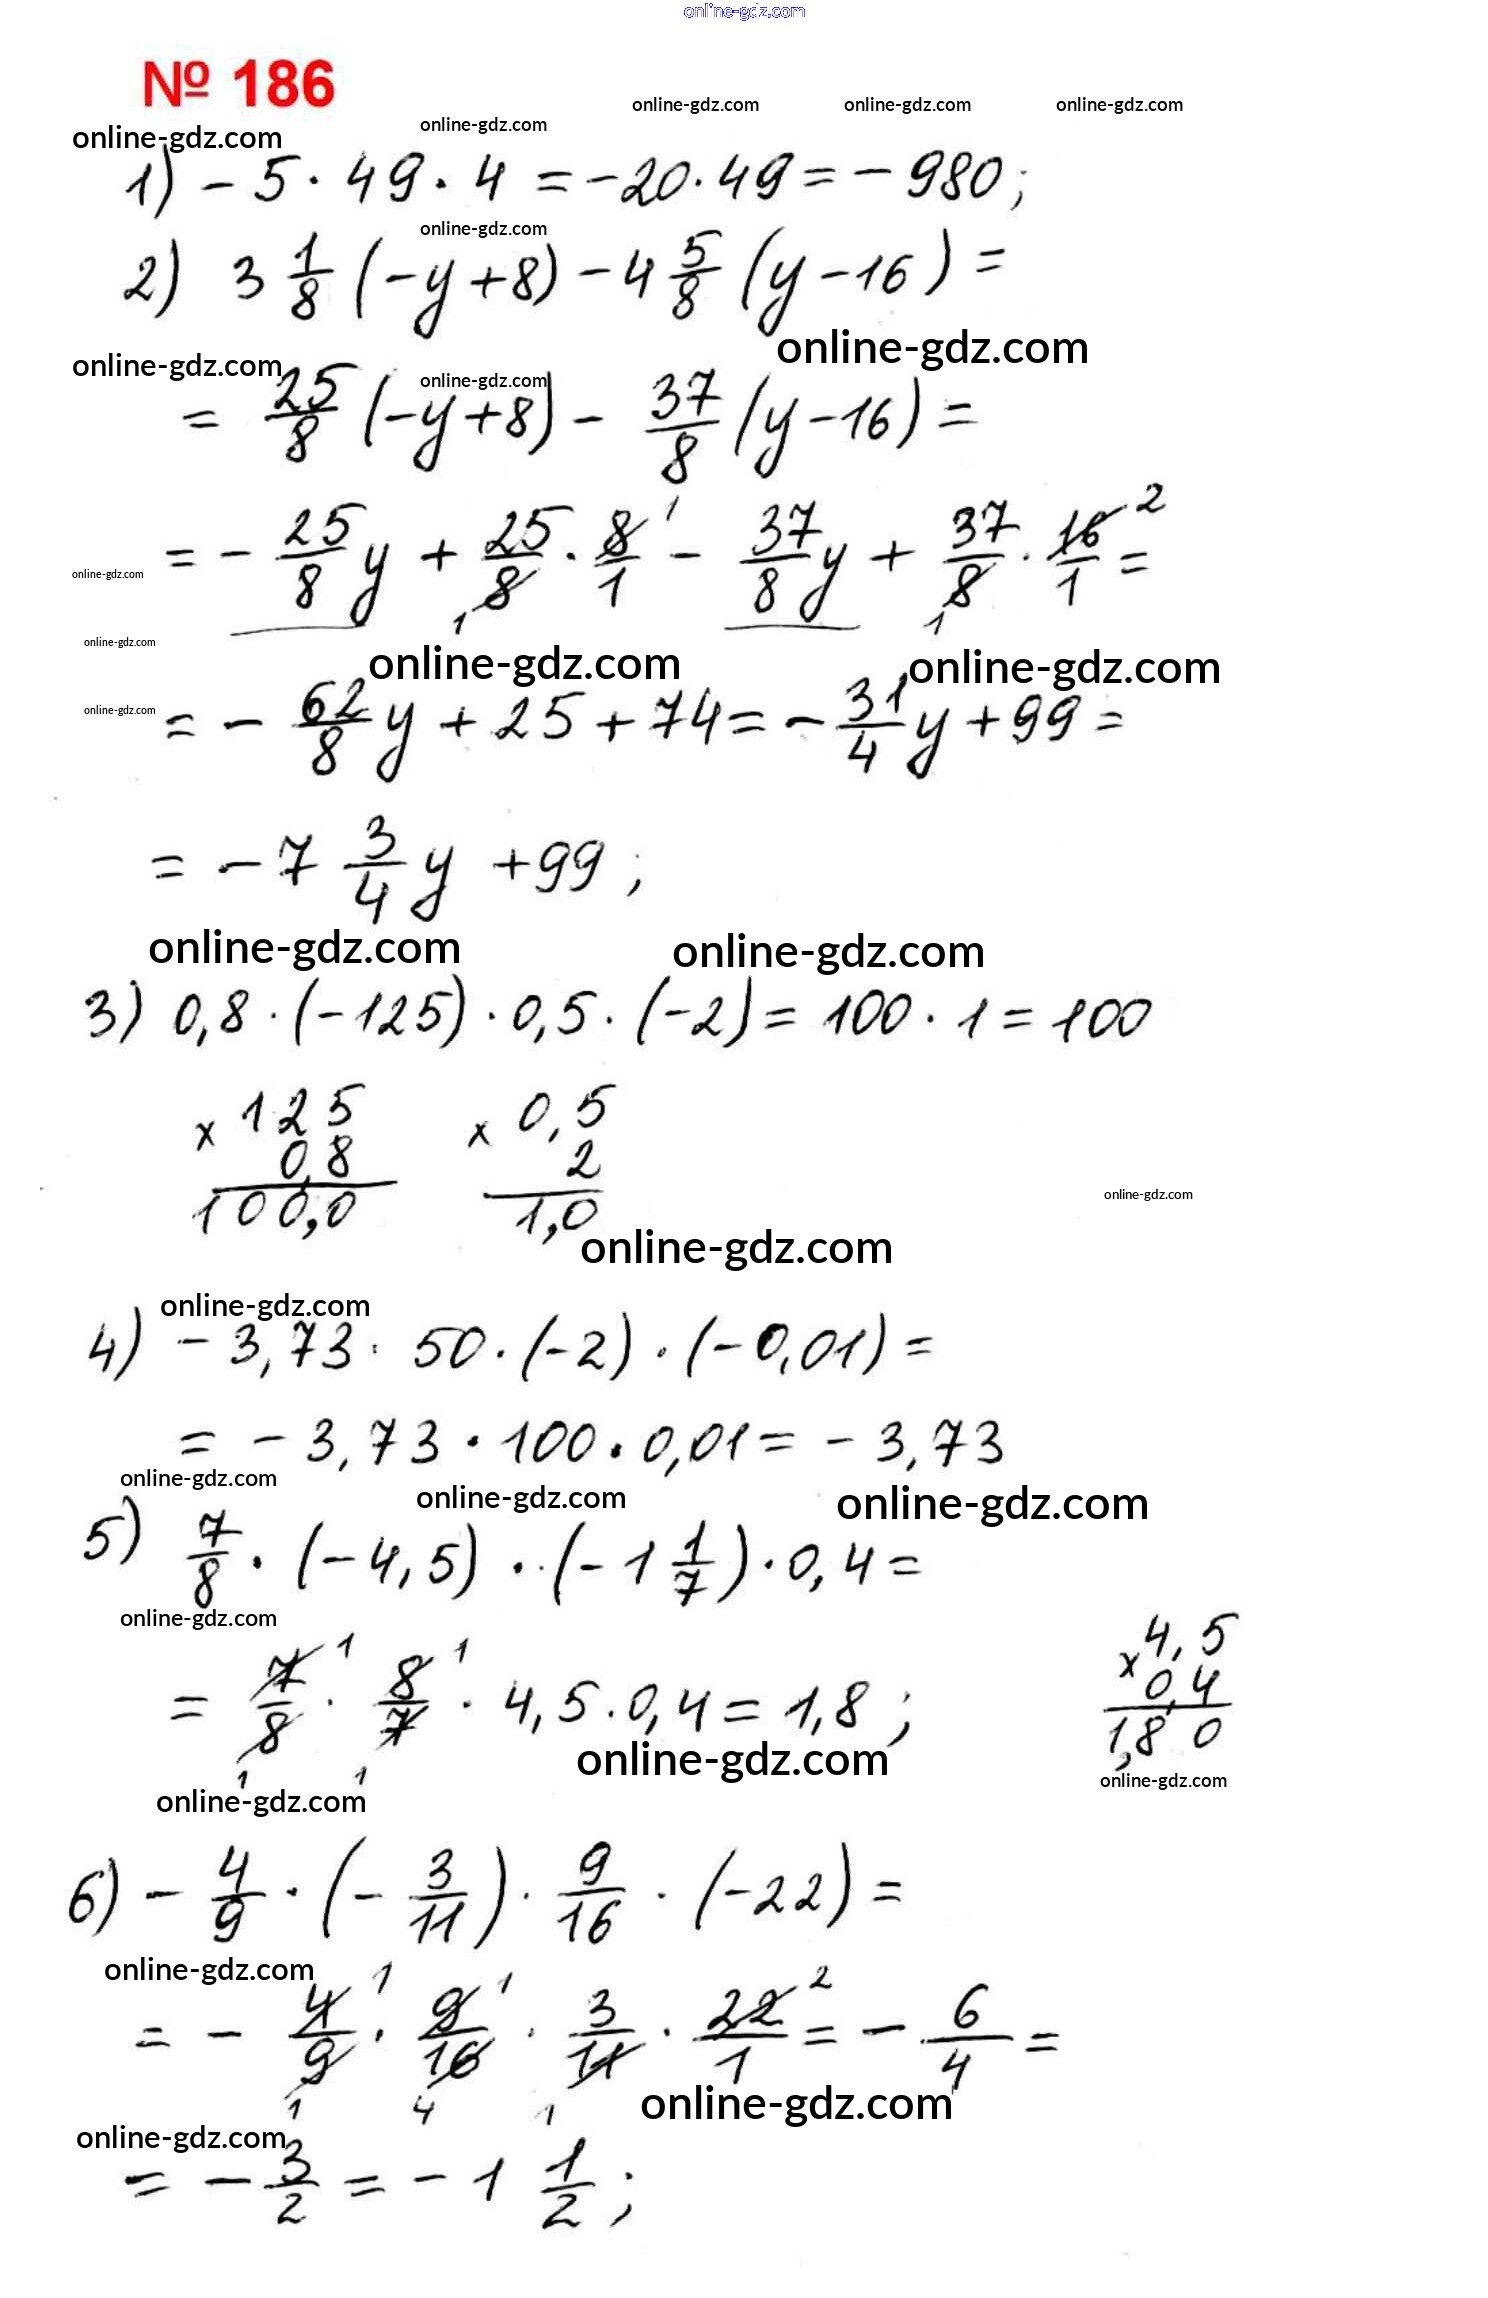 online-gdz.com
№ 186
online-gdz.com online-gdz.com online-gdz.com
online-gdz.com online-gdz.com
1) - 5 · 49 · 4 = -20 · 49 = - 980;
online-gdz.com
2) 3 1/8 (-y+8) - 4 5/8 (y-16) =
online-gdz.com
online-gdz.com online-gdz.com
= 25/8 (-y+8) - 37/8 (y-16) =
= - 25/8 y + 25/8 · 8/1 - 37/8 y + 37/8 · 16/1 =
1 2
1 1
online-gdz.com
online-gdz.com
online-gdz.com online-gdz.com
online-gdz.com
= - 62/8 y + 25 + 74 = - 31/4 y + 99 =
= - 7 3/4 y + 99 ;
online-gdz.com online-gdz.com
3) 0,8 · (-125) · 0,5 · (-2) = 100 · 1 = 100
x 125 x 0,5
0,8 2
100,0 1,0
online-gdz.com
online-gdz.com
online-gdz.com
4) - 3,73 · 50 · (-2) · (-0,01) =
= - 3,73 · 100 · 0,01 = - 3,73
online-gdz.com
online-gdz.com online-gdz.com
5) 7/8 · (-4,5) · (-1 1/7) · 0,4 =
online-gdz.com
= 7/8 · 8/7 · 4,5 · 0,4 = 1,8 ;
1 1
1 1
x 4,5
0,4
1,80
online-gdz.com
online-gdz.com
online-gdz.com
6) - 4/9 · (- 3/11) · 9/16 · (-22) =
online-gdz.com
= - 4/9 · 9/16 · 3/11 · 22/1 = - 6/4 =
1 1 2
1 4 1
online-gdz.com
online-gdz.com
= - 3/2 = - 1 1/2 ;